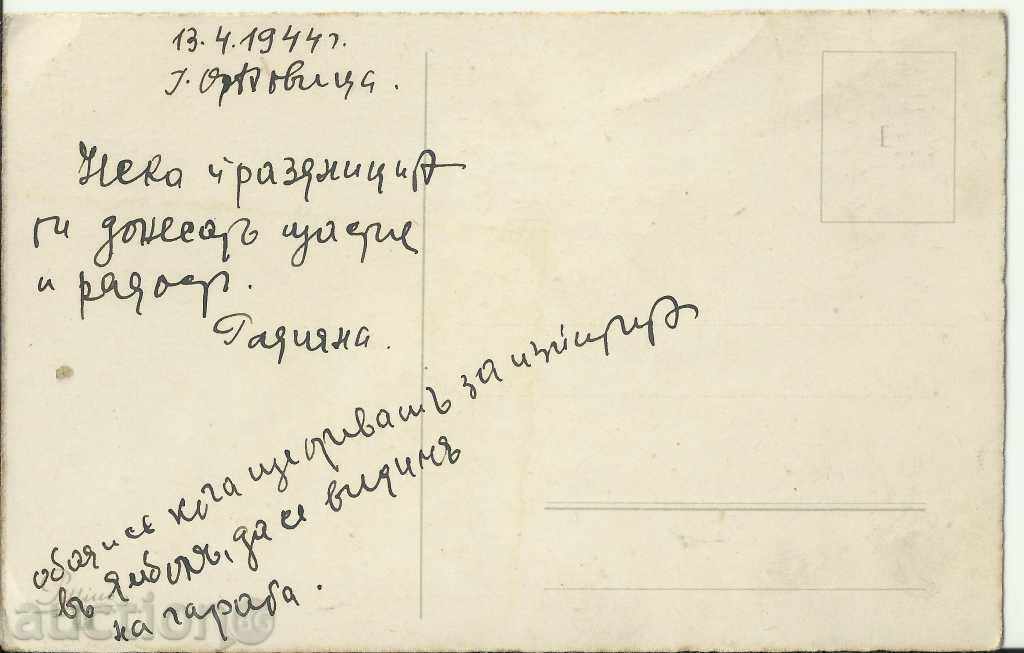 13.4.1944г.
г. Оряховица.
Нека праздницитѣ
ти донесатъ щастие
и радость.
Татяна.
обади се кога ще отивашъ за изпититѣ
въ Ямболъ, да се видимъ
на гарата.
auction.bg